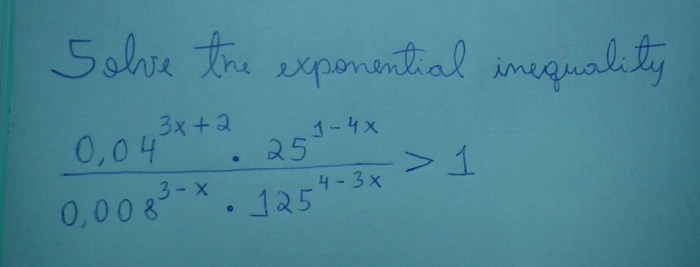 Solve the exponential inequality
0,04^{3x+2} . 25^{1-4x} / 0,008^{3-x} . 125^{4-3x} > 1